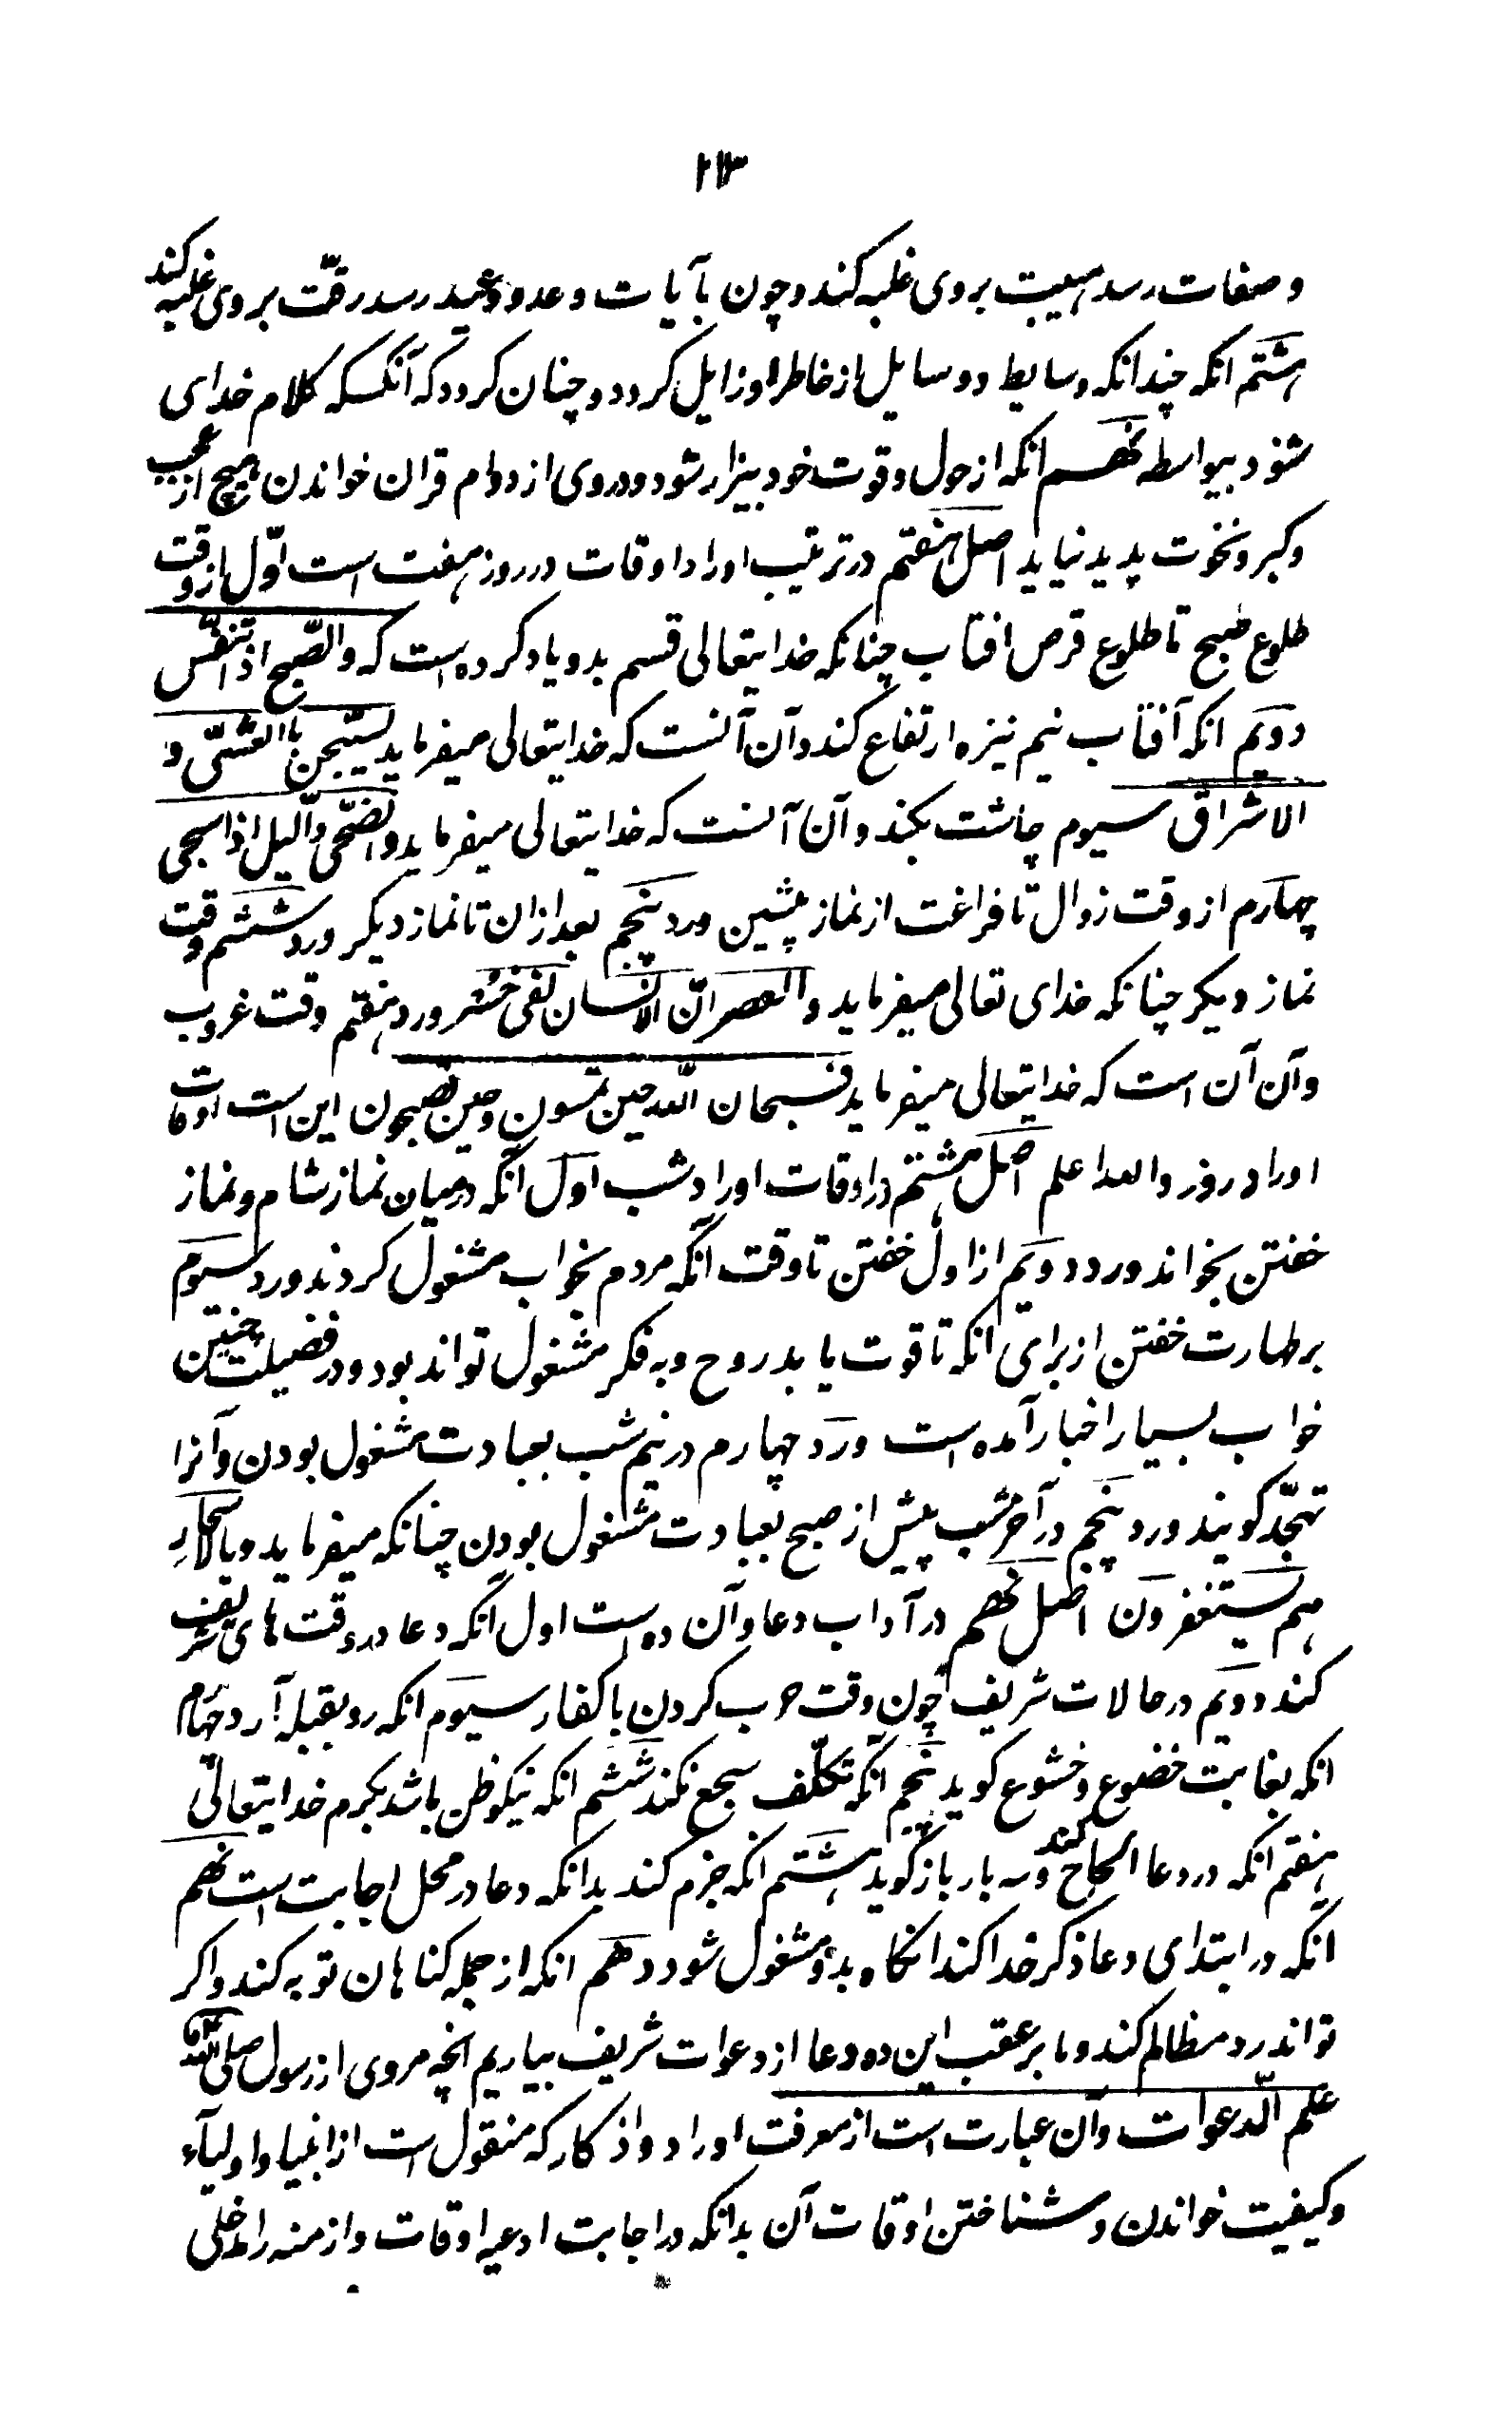 ۱۲۳
وصفات رسد هیبت بروی غلبه کند و چون بآیات وعد و وعید رسد رقّت بروی غلبه کند
هشتم انکه چندانکه وسایط و وسایل از خاطر او زایل کردد و چنان کردد که آنکسکه کلام خدای
شنود بیواسطه نهم انکه از حول و قوت خود بیزار شود و در وی از دوام قران خواندن هیچ از عجب
و کبر و نخوت پدید نیاید اصل هفتم در ترتیب اوراد اوقات در روز هفت است اوّل از وقت
طلوع صبح تا طلوع قرص افتاب چنانکه خدایتعالی قسم بدو یاد کرده است که والصّبح اذا تنفّس
دویم انکه آفتاب نیم نیزه ارتفاع کند و آن آنست که خدایتعالی میفرماید یسبّحن باالعشّی و
الاشراق سیوم چاشت بکند و آن آنست که خدایتعالی میفرماید والضّحی والّیل اذا سجی
چهارم از وقت زوال تا فراغت از نماز پیشین ورد پنجم بعد ازان تا نماز دیکر ورد ششم وقت
نماز دیکر چنانکه خدای تعالی میفرماید والعصر انّ الانسان لفی خسر ورد هفتم وقت غروب
و آن آن است که خدایتعالی میفرماید فسبحان الله حین تمسون و حین تصبحون این است اوقات
اوراد روز والله اعلم اصل هشتم در اوقات اوراد شب اول آنکه در میان نماز شام و نماز
خفتن بخواند ورد دویم از اول خفتن تا وقت آنکه مردم بخواب مشغول کردند ورد سیوم
بر طهارت خفتن از برای انکه تا قوت یابد روح و به فکر مشغول تواند بود و در فضیلت چنین
خواب بسیار اخبار آمده است ورد چهارم در نیم شب بعبادت مشغول بودن و آنرا
تهجّد کویند ورد پنجم در آخر شب پیش از صبح بعبادت مشغول بودن چنانکه میفرماید وبالاسحارِ
هم یستغفرون اصل نهم در آداب دعا و آن ده است اول آنکه دعا در وقت های شریف
کند دویم در حالات شریف چون وقت حرب کردن با کفار سیوم انکه رو بقبله آرد چهارم
انکه بغایت خضوع و خشوع کوید پنجم آنکه تکلّف سجع نکند ششم انکه نیکو ظن باشد بکرم خدایتعالی
هفتم انکه در دعا الحاح کند و سه بار باز کوید هشتم انکه جزم کند بدانکه دعا در محل اجابت است نهم
آنکه در ابتدای دعا ذکر خدا کند انکاه بدو مشغول شود دهم انکه از جمله کناهان توبه کند و اکر
تواند رد مظالم کند و ما بر عقب این ده دعا از دعوات شریف بیاریم انچه مروی از رسول صلی الله
علم الّدعوات و آن عبارت است از معرفت اوراد و اذکار که منقول است از انبیا و اولیآء
و کیفیت خواندن و شناختن اوقات آن بدانکه در اجابت ادعیه اوقات و ازمنه را مدخلی